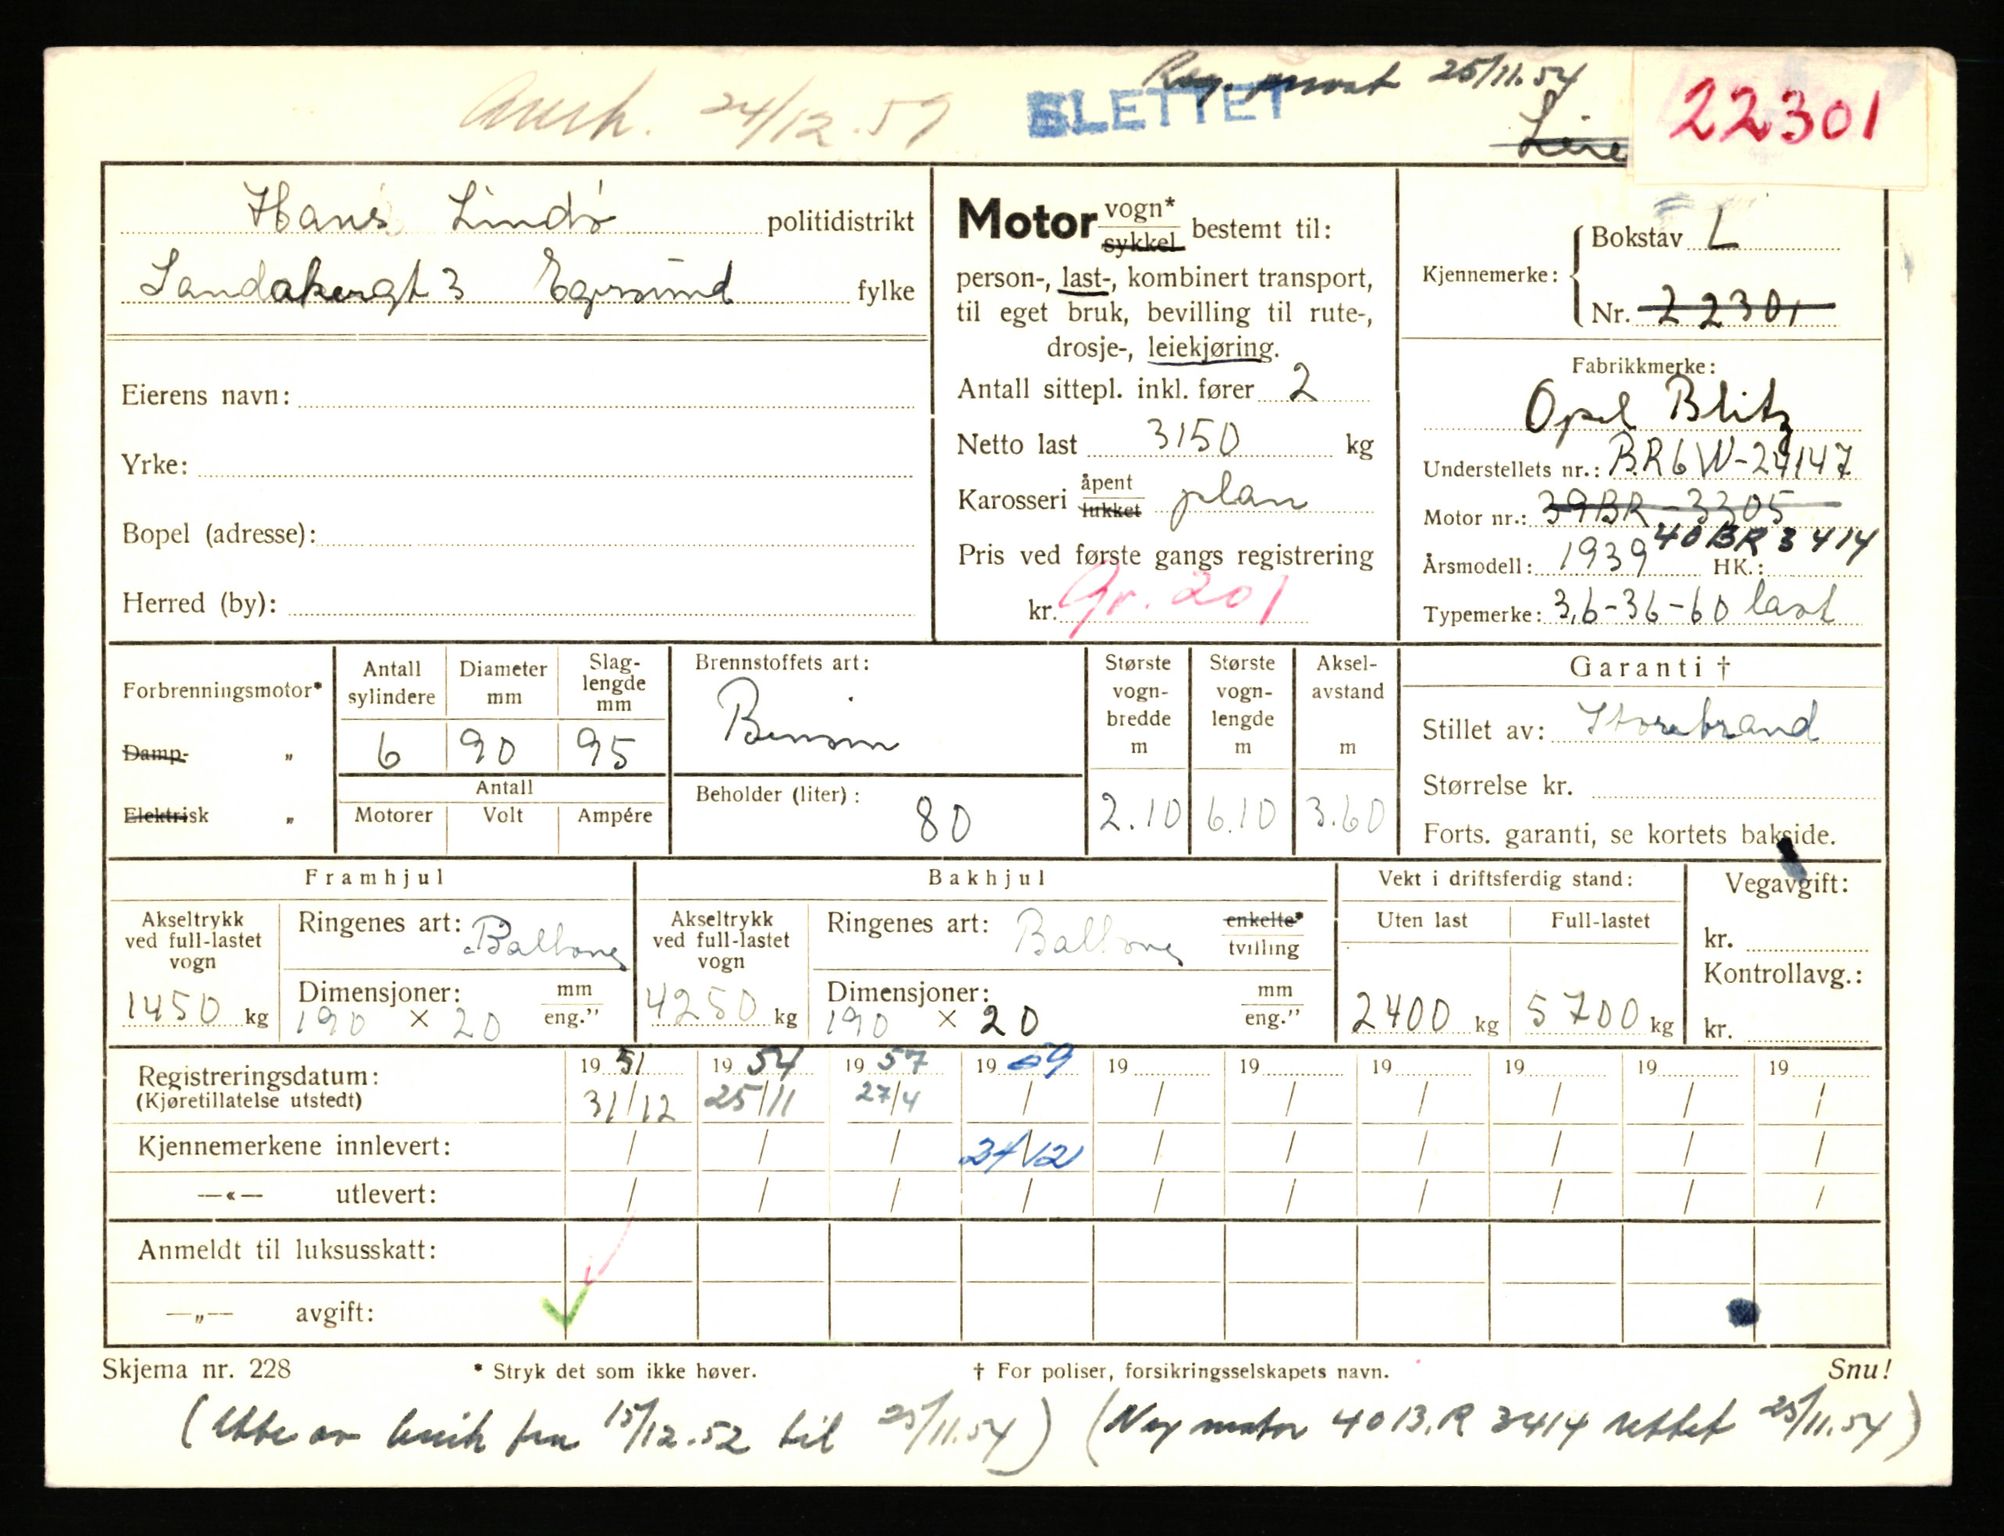 Avsk. 24/12.59
SLETTET
Reg. privat 25/11.54
Leie
22301
Hans Lindø politidistrikt
Sandakergt 3 Egersund fylke
Eierens navn:
Yrke:
Bopel (adresse):
Herred (by):
Motor vogn* sykkel bestemt til:
person-, last-, kombinert transport,
til eget bruk, bevilling til rute-,
drosje-, leiekjøring.
Antall sittepl. inkl. fører 2
Netto last 3150 kg
Karosseri åpent lukket plan
Pris ved første gangs registrering
kr. Gr. 201
Kjennemerke: Bokstav L
Nr. 22301
Fabrikkmerke:
Opel Blitz
Understellets nr.: BR6W-24147
Motor nr.: 39BR-3305
40BR3414
Årsmodell: 1939 HK.:
Typemerke: 3,6-36-60 last
Forbrenningsmotor*
Damp- „
Elektrisk „
Antall sylindere 6
Diameter mm 90
Slag-lengde mm 95
Antall
Motorer Volt Ampére
Brennstoffets art:
Bensin
Beholder (liter): 80
Største vogn-bredde m 2.10
Største vogn-lengde m 6.10
Aksel-avstand m 3.60
Garanti †
Stillet av: Storebrand
Størrelse kr.
Forts. garanti, se kortets bakside.
Framhjul
Akseltrykk ved full-lastet vogn 1450 kg
Ringenes art: Ballong
Dimensjoner: mm eng."
190 × 20
Bakhjul
Akseltrykk ved full-lastet vogn 4250 kg
Ringenes art: Ballong enkelte* tvilling
Dimensjoner: mm eng."
190 × 20
Vekt i driftsferdig stand:
Uten last Full-lastet
2400 kg 5700 kg
Vegavgift:
kr.
Kontrollavg.:
kr.
Registreringsdatum: 19 51 19 54 19 57 19 59 19 19 19 19 19 19
(Kjøretillatelse utstedt) 31/12 25/11 27/4 / / / / / / /
Kjennemerkene innlevert: / / / 24/12 / / / / / /
—«— utlevert: / / / / / / / / / /
Anmeldt til luksusskatt:
—„— avgift:
Skjema nr. 228 * Stryk det som ikke høver. † For poliser, forsikringsselskapets navn. Snu!
(Ute av bruk fra 15/12.52 til 25/11.54) (Ny motor 40B.R 3414 rettet 25/11.54)